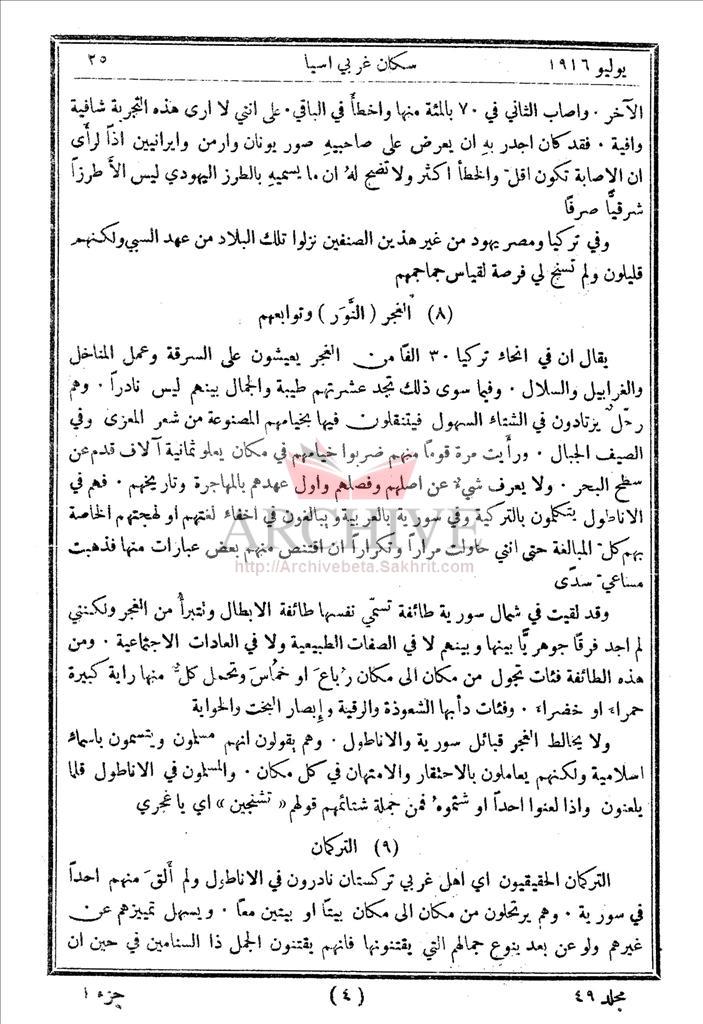 يوليو ١٩١٦ سكان غربي اسيا ٢٥
الآخر . واصاب الثاني في ٧٠ بالمئة منها واخطأ في الباقي . على انني لا ارى هذه التجربة شافية
وافية . فقد كان اجدر بهِ ان يعرض على صاحبيهِ صور يونان وارمن وايرانيين اذاً لرأى
ان الاصابة تكون اقلّ والخطأ اكثر ولاتضح لهُ ان ما يسميهِ بالطرز اليهودي ليس الاَّ طرزاً
شرقيًّا صرفًا
وفي تركيا ومصر يهود من غير هذين الصنفين نزلوا تلك البلاد من عهد السبي ولكنهم
قليلون ولم تسنح لي فرصة لقياس جماجمهم
(٨) الغجر ( النَّوَر ) وتوابعهم
يقال ان في انحاء تركيا ٣٠ الفاً من الغجر يعيشون على السرقة وعمل المناخل
والغرابيل والسلال . وفيما سوى ذلك تجد عشرتهم طيبة والجمال بينهم ليس نادراً . وهم
رحّل يرتادون في الشتاء السهول فيتنقلون فيها بخيامهم المصنوعة من شعر المعزى وفي
الصيف الجبال . ورأيت مرة قوماً منهم ضربوا خيامهم في مكان يعلو ثمانية آلاف قدم عن
سطح البحر . ولا يعرف شيءٌ عن اصلهم وفصلهم واول عهدهم بالمهاجرة وتاريخهم . فهم في
الاناطول يتكلمون بالتركية وفي سورية بالعربية ويبالغون في اخفاء لغتهم او لهجتهم الخاصة
بهم كلّ المبالغة حتى انني حاولت مراراً وتكراراً ان اقتنص منهم بعض عبارات منها فذهبت
مساعيَّ سدًى
وقد لقيت في شمال سورية طائفة تسمّي نفسها طائفة الابطال وتتبرأُ من الغجر ولكنني
لم اجد فرقاً جوهريًّا بينها وبينهم لا في الصفات الطبيعية ولا في العادات الاجتماعية . ومن
هذه الطائفة فئات تجول من مكان الى مكان رُباعَ او خُماسَ وتحمل كلٌّ منها راية كبيرة
حمراءَ او خضراءَ . وفئات دأبها الشعوذة والرقية وإبصار البخت والحواية
ولا يخالط الغجر قبائل سورية والاناطول . وهم يقولون انهم مسلمون ويتسمون باسماء
اسلامية ولكنهم يعاملون بالاحتقار والامتهان في كل مكان . والمسلمون في الاناطول قلما
يلعنون واذا لعنوا احداً او شتموهُ فمن جملة شتائمهم قولهم « تشنجين » اي يا غجري
(٩) التركمان
التركمان الحقيقيون اي اهل غربي تركستان نادرون في الاناطول ولم ألقَ منهم احداً
في سورية . وهم يرتحلون من مكان الى مكان بيتاً او بيتين معاً . ويسهل تمييزهم عن
غيرهم ولو عن بعد بنوع جمالهم التي يقتنونها فانهم يقتنون الجمل ذا السنامين في حين ان
مجلد ٤٩ (٤) جزء ١
ARCHIVE
http://Archivebeta.Sakhrit.com